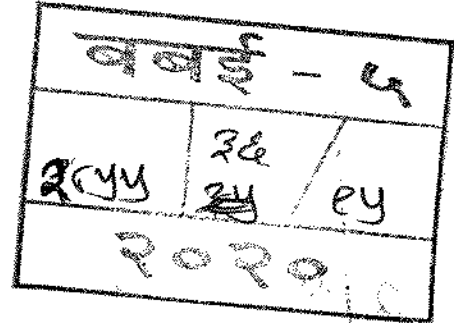 बबई - ५
२८५५ ३६ / ९५
२०२०